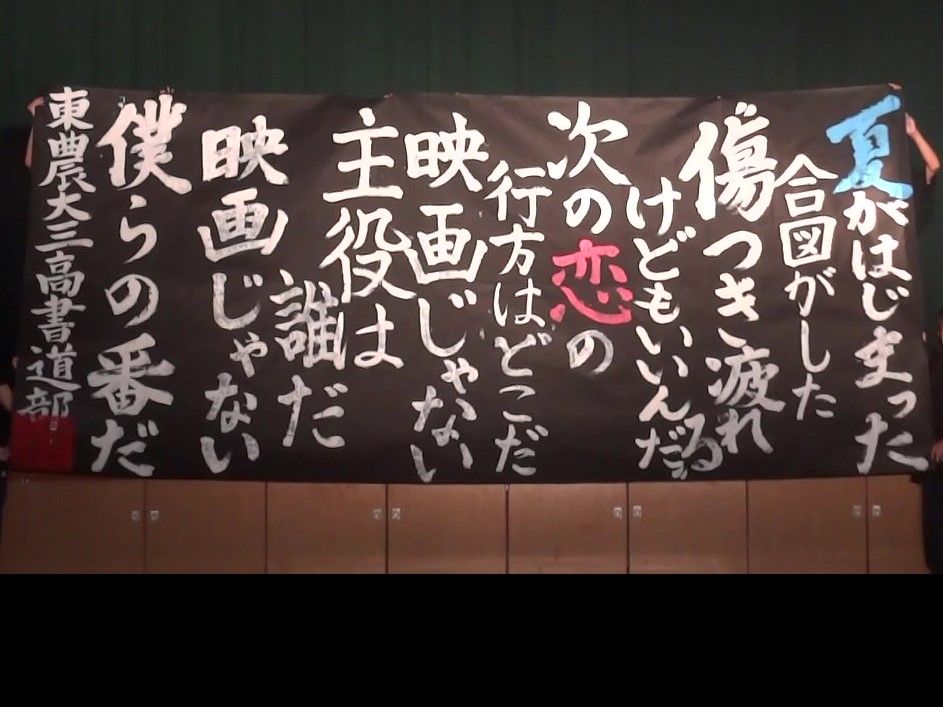 夏がはじまった
合図がした
傷つき疲れる
けどもいいんだ
次の恋の
行方はどこだ
映画じゃない
主役は
誰だ
映画じゃない
僕らの番だ
東農大三高書道部